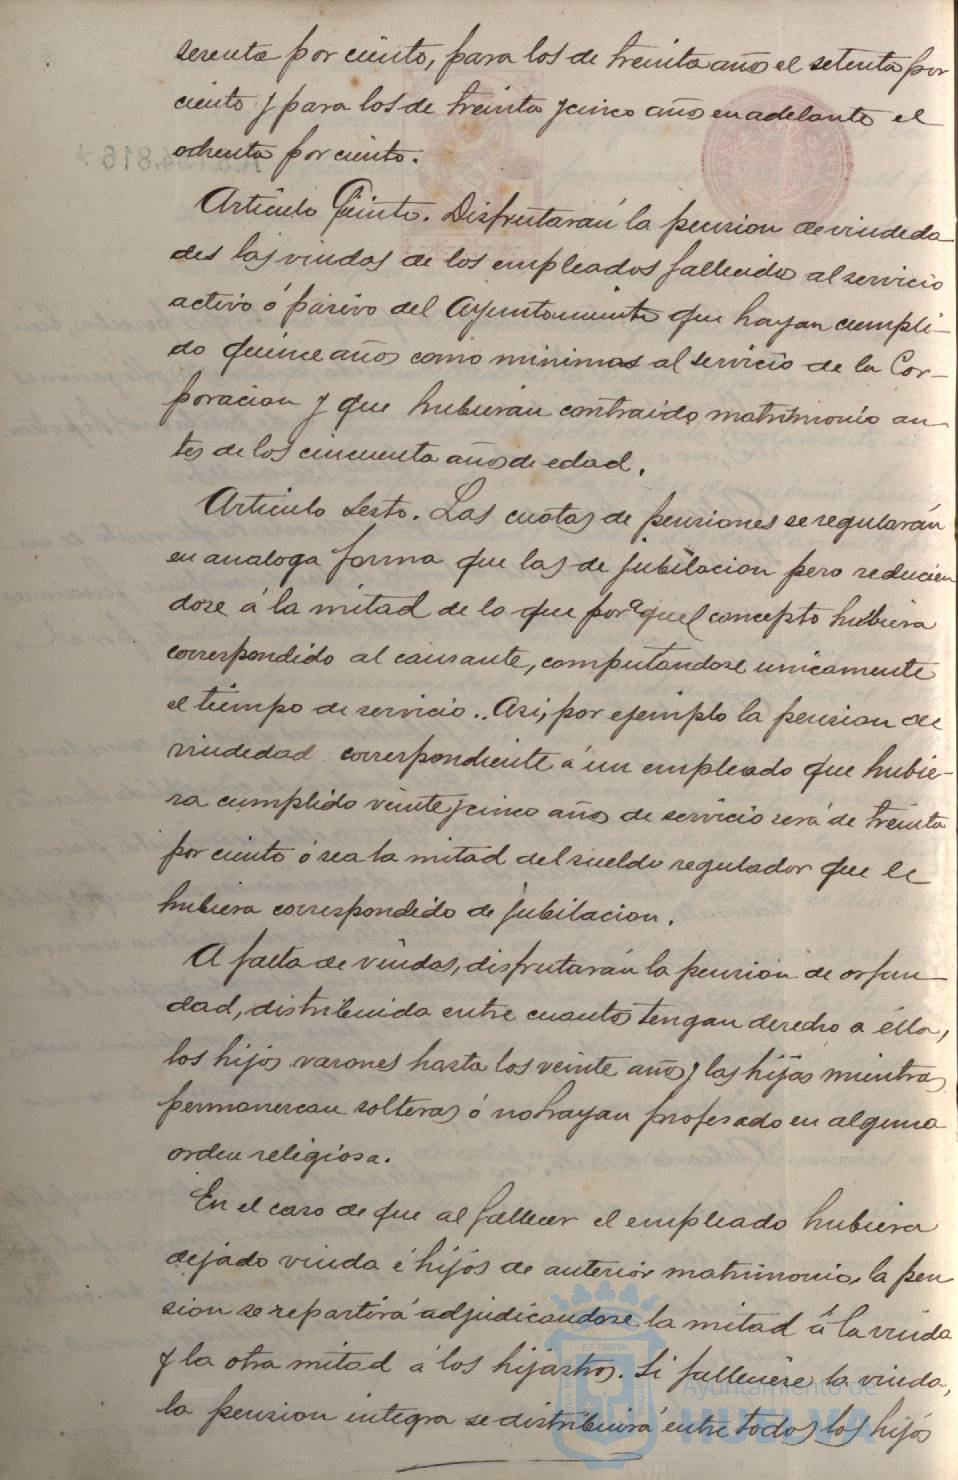 sesenta por ciento, para los de treinta años el setenta por
ciento y para los de treinta y cinco años en adelante el
ochenta por ciento.
Artículo Quinto. Disfrutarán la pension de viudeda
des las viudas de los empleados fallecidos al servicio
activo ó pasivo del Ayuntamiento que hayan cumpli-
do quince años como minimas al servicio de la Cor-
poracion y que hubieran contraido matrimonio an-
tes de los cincuenta años de edad.
Articulo Sesto. Las cuotas de pensiones se regularán
en analoga forma que las de jubilacion pero reducien
dose á la mitad de lo que por aquel concepto hubiera
correspondido al causante, computandose unicamente
el tiempo de servicio. Asi, por ejemplo la pension de
viudedad correspondiente á un empleado que hubie-
ra cumplido veinte y cinco años de servicio será de treinta
por ciento ó sea la mitad del sueldo regulador que le
hubiera correspondido de jubilacion.
A falta de viudas, disfrutarán la pension de orfan-
dad, distribuida entre cuantos tengan derecho a élla,
los hijos varones hasta los veinte años y las hijas mientras
permanezcan solteras ó no hayan profesado en alguna
orden religiosa.
En el caso de que al fallecer el empleado hubiera
dejado viuda é hijos de anterior matrimonio, la pen
sion se repartirá adjudicandose la mitad á la viuda
y la otra mitad á los hijastros. Si falleciese la viuda,
la pension integra se distribuirá entre todos los hijos
Ayuntamiento de
HUELVA